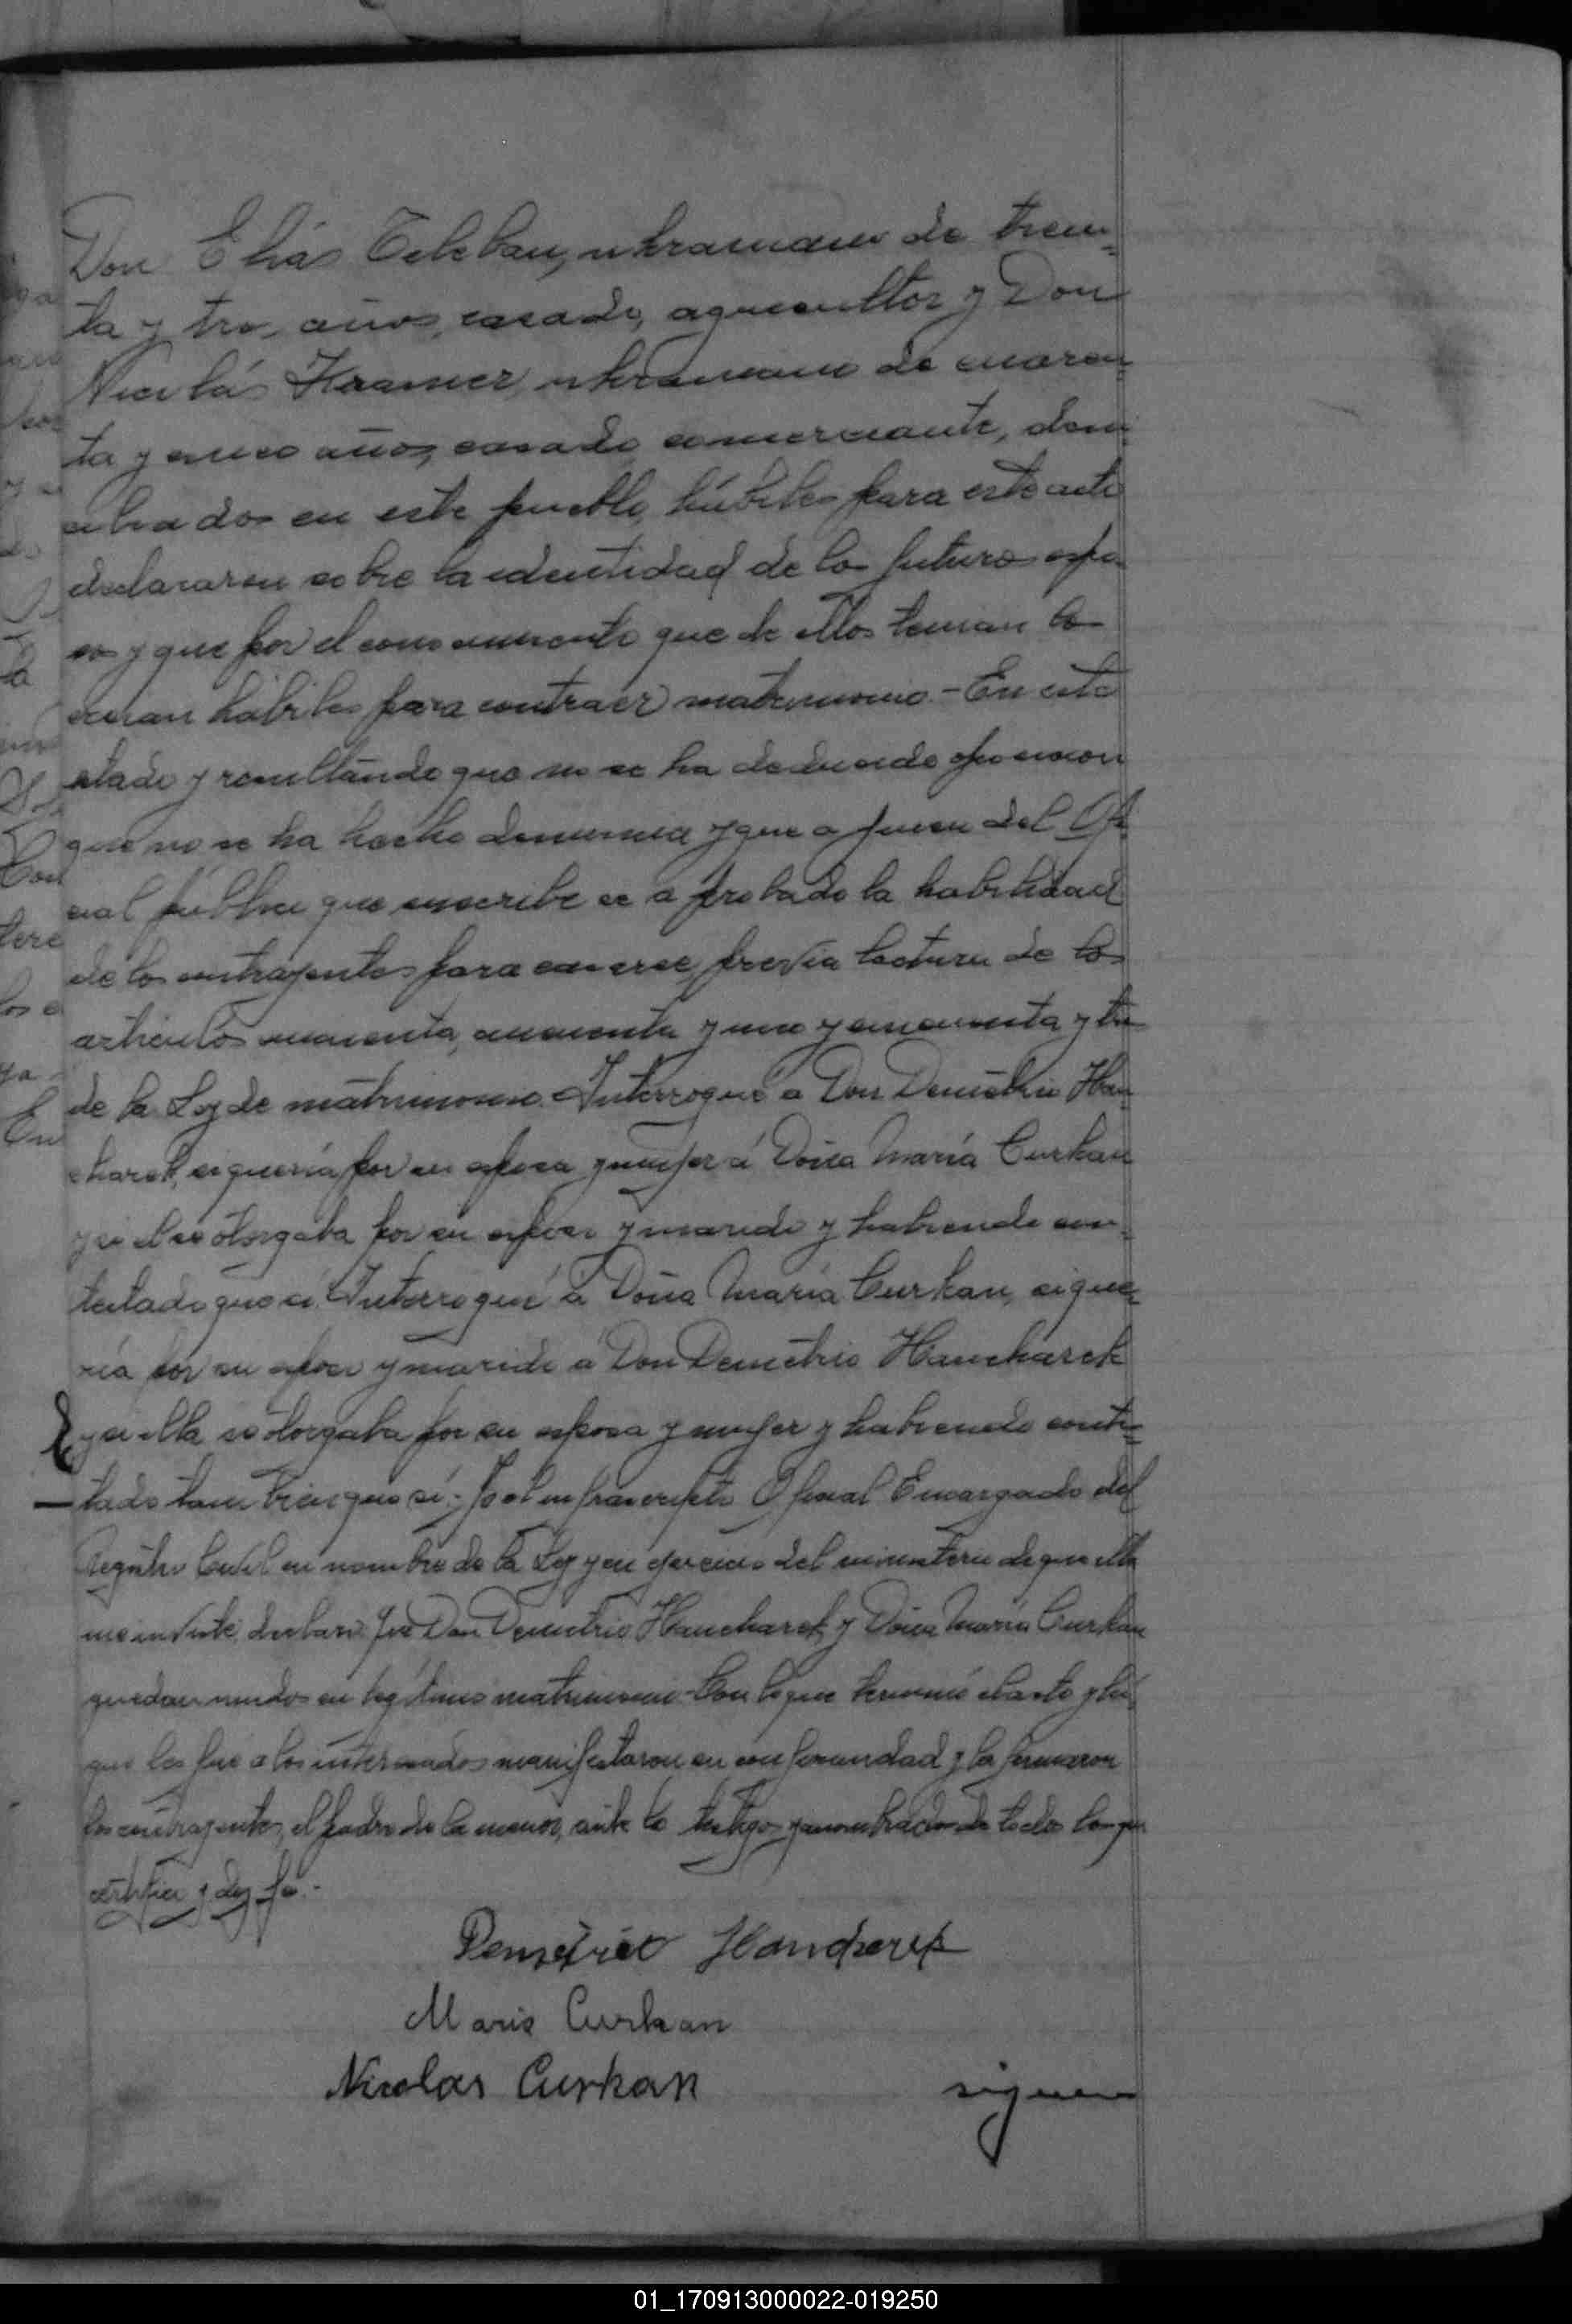 Don Elías Celeban, ukraniano de trein=
ta y tres años, casado, agricultor y Don
Nicolás Kramer, ukraniano de cuaren=
ta y cinco años, casado comerciante, domi=
ciliados en este pueblo, hábiles para este acto
declararon sobre la identidad de los futuros espo
sos y que por el conocimiento que de ellos tenían los
creían hábiles para contraer matrimonio.- En este
estado y resultando que no se ha deducido oposición
que no se ha hecho denuncia y que a juicio del Ofi
cial público que suscribe se a probado la habilidad
de los contrayentes para casarse, previa lectura de los
artículos cincuenta, cincuenta y uno y cincuenta y tres
de la Ley de matrimonio. Interrogué a Don Demétrio Han=
charek, si quería por su esposa y mujer á Doña María Curkan
y si él se otorgaba por su esposo y marido y habiendo con=
testado que sí. Interrogué á Doña María Curkan, si que=
ría por su esposo y marido a Don Demetrio Hancharek
y si ella se otorgaba por su esposa y mujer y habiendo contes=
tado tambien que sí;- Yo el infrascripto Oficial Encargado del
Registro Civil en nombre de la Ley y en ejercicio del ministerio de que ella
me inviste, declaro que Don Demetrio Hancharek y Doña María Curkan
quedan unidos en legítimo matrimonio - Con lo que terminó el acto y leí=
que les fue a los interesados manifestaron su conformidad y la firmaron
los contrayentes, el padre de la menor, ante los testigos ya nombrados de todo lo que
certifico y doy fé.-
Demetrio Hancharek
Maria Curkan
Nicolas Curkan siguen
01_170913000022-019250